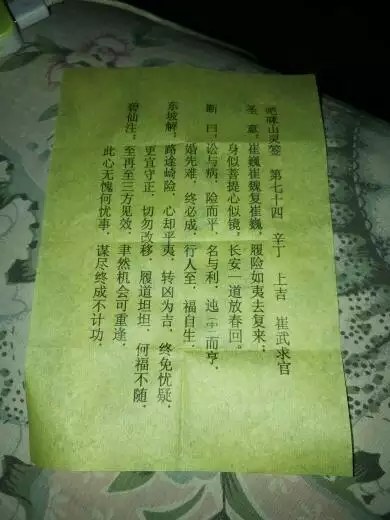 吧咪山灵签 第七十四 辛丁 上吉 崔武求官
圣意：崔巍崔巍复崔巍，履险如夷去复来；
身似菩提心似镜，长安一道放春回。
断曰：讼与病，险而平，名与利，迍(中)而亨，
婚先难，终必成，行人至，福自生。
东坡解：路途崎险，心却平夷，转凶为吉，终免忧疑，
更宜守正，切勿改移，履道坦坦，何福不随，
碧仙注：至再至三方见效，聿然机会可重逢，
此心无愧何忧事，谋尽终成不计功，